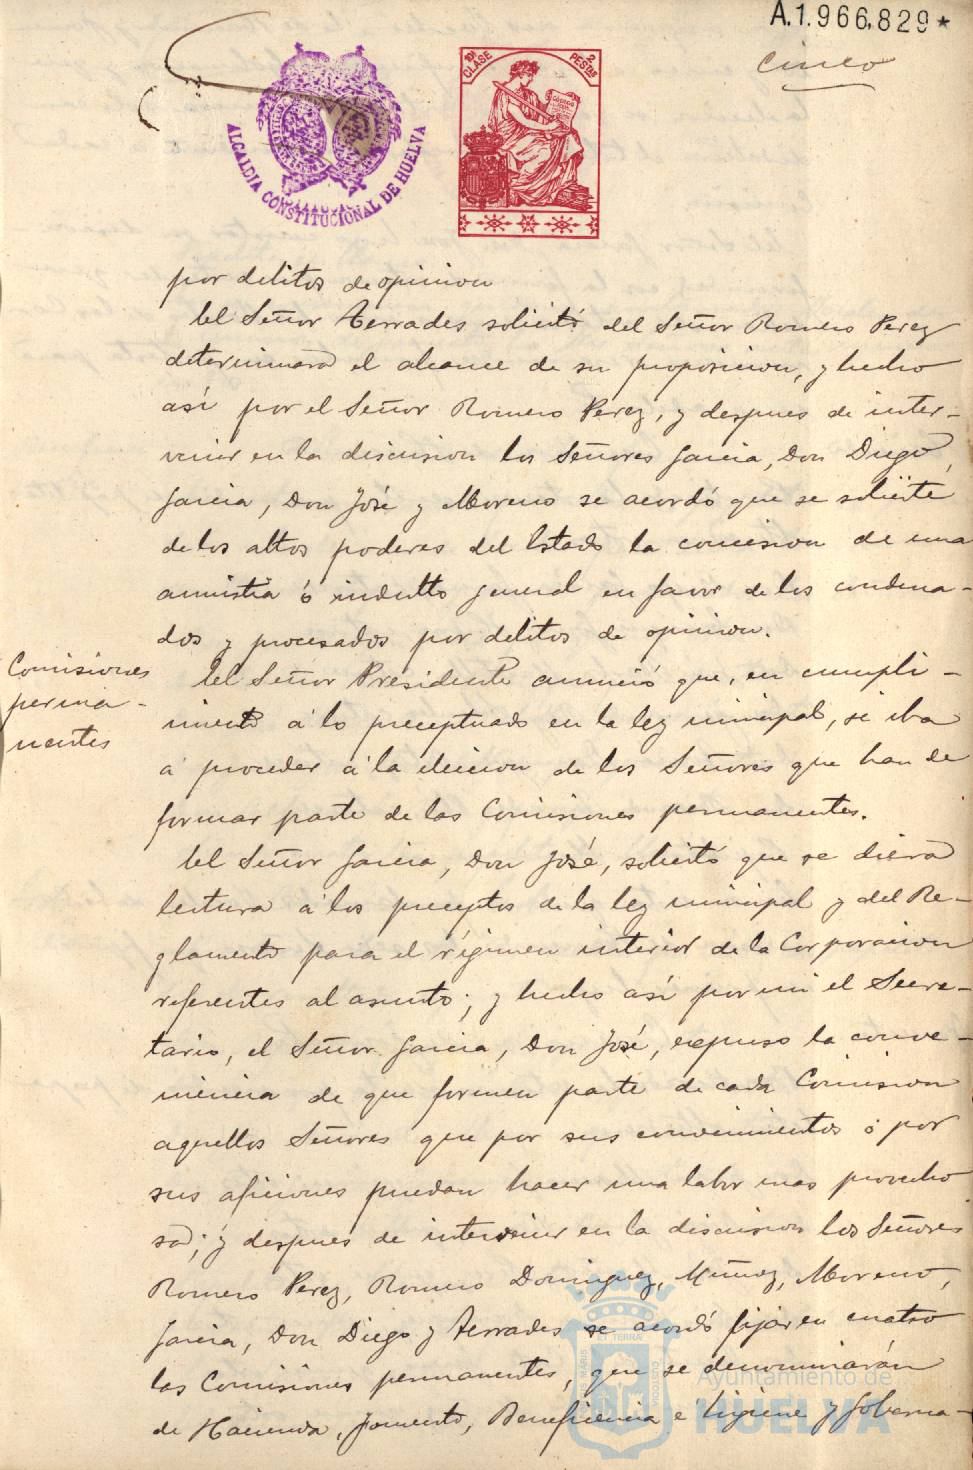 A.1.966.829*
cinco
10ª CLASE
2 PESETAS
ALCALDIA CONSTITUCIONAL DE HUELVA
por delitos de opinion
El Señor Terrades solicitó del Señor Romero Perez
determinara el alcance de su proposicion, y hecho
así por el Señor Romero Perez, y despues de inter-
venir en la discusion los Señores Garcia, Don Diego,
Garcia, Don José y Moreno se acordó que se solicite
de los altos poderes del Estado la concesion de una
amnistia ó indulto general en favor de los condena-
dos y procesados por delitos de opinion.
Comisiones
perma-
nentes
El Señor Presidente anunció que, en cumpli-
miento á lo preceptuado en la ley municipal, se iba
á proceder á la eleccion de los Señores que han de
formar parte de las Comisiones permanentes.
El Señor Garcia, Don José, solicitó que se diera
lectura á los preceptos de la ley municipal y del Re-
glamento para el régimen interior de la Corporacion
referentes al asunto; y hecho así por mi el Secre-
tario, el Señor Garcia, Don José, expuso la conve-
niencia de que formen parte de cada Comision
aquellos Señores que por sus conocimientos ó por
sus aficiones puedan hacer una labor mas provecho
sa; y despues de intervenir en la discusion los Señores
Romero Perez, Romero Dominguez, Muñoz, Moreno,
Garcia, Don Diego y Terrades se acordó fijar en cuatro
las Comisiones permanentes, que se denominarán
de Hacienda, Fomento, Beneficencia e Higiene y Goberna-
Ayuntamiento de
HUELVA